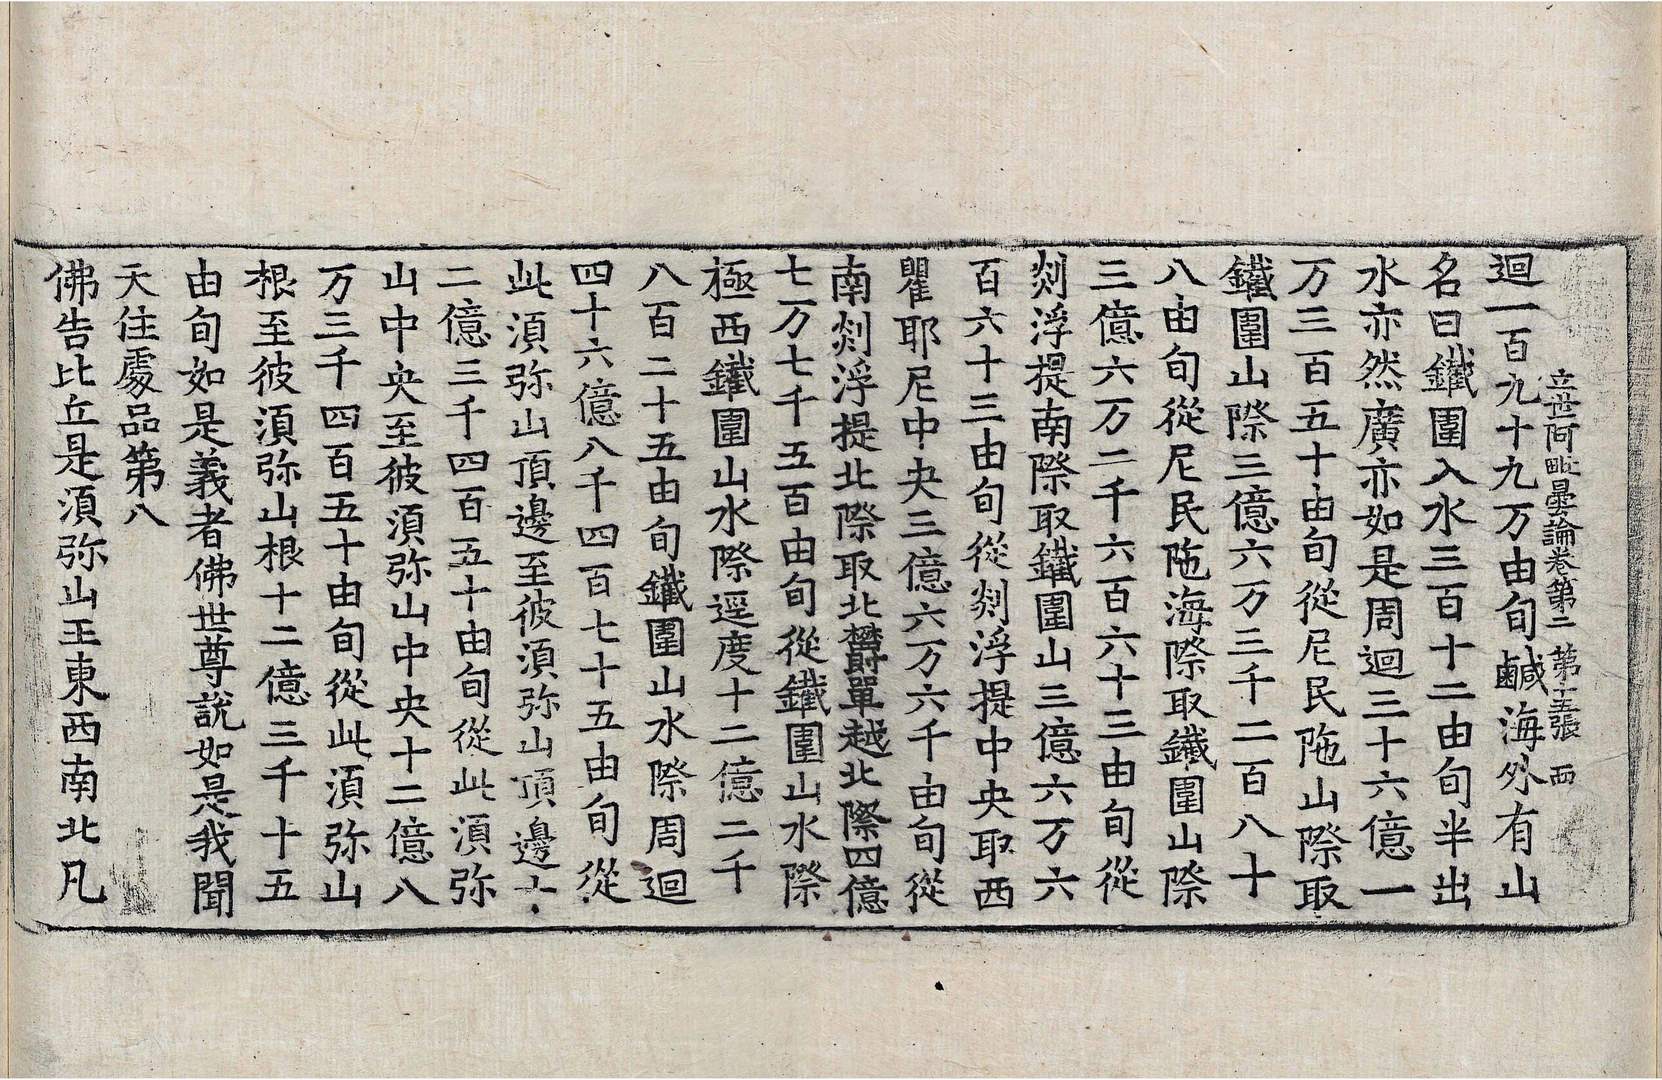 立世阿毗曇論卷第二 第十五張 西
迴一百九十九万由旬鹹海外有山
名曰鐵圍入水三百十二由旬半出
水亦然廣亦如是周迴三十六億一
万三百五十由旬從尼民陁山際取
鐵圍山際三億六万三千二百八十
八由旬從尼民陁海際取鐵圍山際
三億六万二千六百六十三由旬從
剡浮提南際取鐵圍山三億六万六
百六十三由旬從剡浮提中央取西
瞿耶尼中央三億六万六千由旬從
南剡浮提北際取北欝單越北際四億
七万七千五百由旬從鐵圍山水際
極西鐵圍山水際逕度十二億二千
八百二十五由旬鐵圍山水際周迴
四十六億八千四百七十五由旬從
此湏弥山頂邊至彼湏弥山頂邊十
二億三千四百五十由旬從此湏弥
山中央至彼湏弥山中央十二億八
万三千四百五十由旬從此湏弥山
根至彼湏弥山根十二億三千十五
由旬如是義者佛世尊說如是我聞
天住處品第八
佛告比丘是湏弥山王東西南北凡